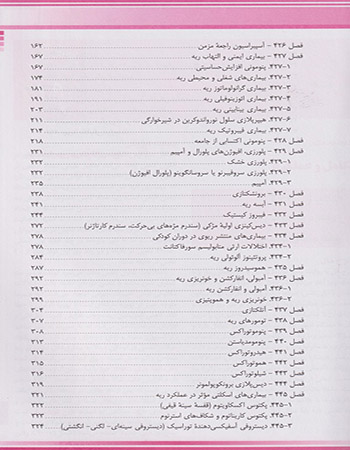 فصل ۴۲۶ - آسپیراسیون راجعهٔ مزمن ۱۶۲
فصل ۴۲۷ - بیماری ایمنی و التهاب ریه ۱۶۷
۱-۴۲۷. پنومونی افزایش‌حساسیتی ۱۶۷
۲-۴۲۷. بیماری‌های شغلی و محیطی ریه ۱۷۴
۳-۴۲۷. بیماری گرانولوماتوز ریه ۱۸۱
۴-۴۲۷. بیماری ائوزینوفیلی ریه ۱۹۱
۵-۴۲۷. بیماری بینابینی ریه ۲۰۳
۶-۴۲۷. هیپرپلازی سلول نورواندوکرین در شیرخوارگی ۲۱۱
۷-۴۲۷. بیماری فیبروتیک ریه ۲۱۴
فصل ۴۲۸ - پنومونی اکتسابی از جامعه ۲۱۸
فصل ۴۲۹ - پلورزی، افیوژن‌های پلورال و آمپیم ۲۳۱
۱-۴۲۹. پلورزی خشک ۲۳۲
۲-۴۲۹. پلورزی سروفیبرنو یا سروسانگوینو (پلورال افیوژن) ۲۳۲
۳-۴۲۹. آمپیم ۲۳۵
فصل ۴۳۰ - برونشکتازی ۲۳۸
فصل ۴۳۱ - آبسه ریه ۲۴۱
فصل ۴۳۲ - فیبروز کیستیک ۲۴۴
فصل ۴۳۳ - دیس‌کینزی اولیهٔ مژکی (سندرم مژه‌های بی‌حرکت، سندرم کارتاژنر) ۲۷۲
فصل ۴۳۴ - بیماری‌های منتشر ریوی در دوران کودکی ۲۷۸
۱-۴۳۴. اختلالات ارثی متابولیسم سورفاکتانت ۲۷۸
۲-۴۳۴. پروتئینوز آلوئولی ریه ۲۸۴
فصل ۴۳۵ - هموسیدروز ریه ۲۸۷
فصل ۴۳۶ - آمبولی، انفارکشن و خونریزی ریه ۲۹۲
۱-۴۳۶. آمبولی و انفارکشن ریه ۲۹۲
۲-۴۳۶. خونریزی ریه و هموپتیزی ۲۹۹
فصل ۴۳۷ - آتلکتازی ۳۰۴
فصل ۴۳۸ - تومورهای ریه ۳۰۷
فصل ۴۳۹ - پنوموتوراکس ۳۰۸
فصل ۴۴۰ - پنومومدیاستن ۳۱۳
فصل ۴۴۱ - هیدروتوراکس ۳۱۴
فصل ۴۴۲ - هموتوراکس ۳۱۵
فصل ۴۴۳ - شیلوتوراکس ۳۱۶
فصل ۴۴۴ - دیس‌پلازی برونکوپولمونر ۳۱۹
فصل ۴۴۵ - بیماری‌های اسکلتی مؤثر در عملکرد ریه ۳۲۱
۱-۴۴۵. پکتوس اکسکاویتوم (قفسهٔ سینهٔ قیفی) ۳۲۱
۲-۴۴۵. پکتوس کاریناتوم و شکاف‌های استرنوم ۳۲۳
۳-۴۴۵. دیستروفی آسفیکسی‌دهندهٔ توراسیک (دیستروفی سینه‌ای- لگنی- انگشتی) ۳۲۴